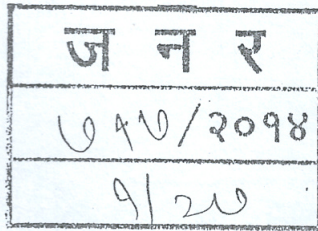 ज न र
७१७/२०१४
१/२७